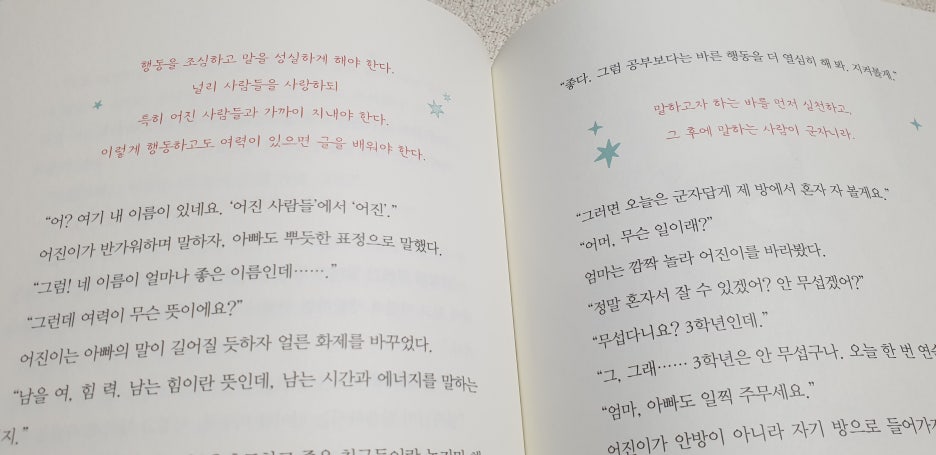 행동을 조심하고 말을 성실하게 해야 한다.
널리 사람들을 사랑하되
특히 어진 사람들과 가까이 지내야 한다.
이렇게 행동하고도 여력이 있으면 글을 배워야 한다.
“어? 여기 내 이름이 있네요. ‘어진 사람들’에서 ‘어진’.”
어진이가 반가워하며 말하자, 아빠도 뿌듯한 표정으로 말했다.
“그럼! 네 이름이 얼마나 좋은 이름인데…….”
“그런데 여력이 무슨 뜻이에요?”
어진이는 아빠의 말이 길어질 듯하자 얼른 화제를 바꾸었다.
“남을 여, 힘 력. 남는 힘이란 뜻인데, 남는 시간과 에너지를 말하는
지.”
“좋다. 그럼 공부보다는 바른 행동을 더 열심히 해 봐. 지켜볼게.”
말하고자 하는 바를 먼저 실천하고,
그 후에 말하는 사람이 군자니라.
“그러면 오늘은 군자답게 제 방에서 혼자 자 볼게요.”
“어머, 무슨 일이래?”
엄마는 깜짝 놀라 어진이를 바라봤다.
“정말 혼자서 잘 수 있겠어? 안 무섭겠어?”
“무섭다니요? 3학년인데.”
“그, 그래…… 3학년은 안 무섭구나. 오늘 한 번 연습
“엄마, 아빠도 일찍 주무세요.”
어진이가 안방이 아니라 자기 방으로 들어가자